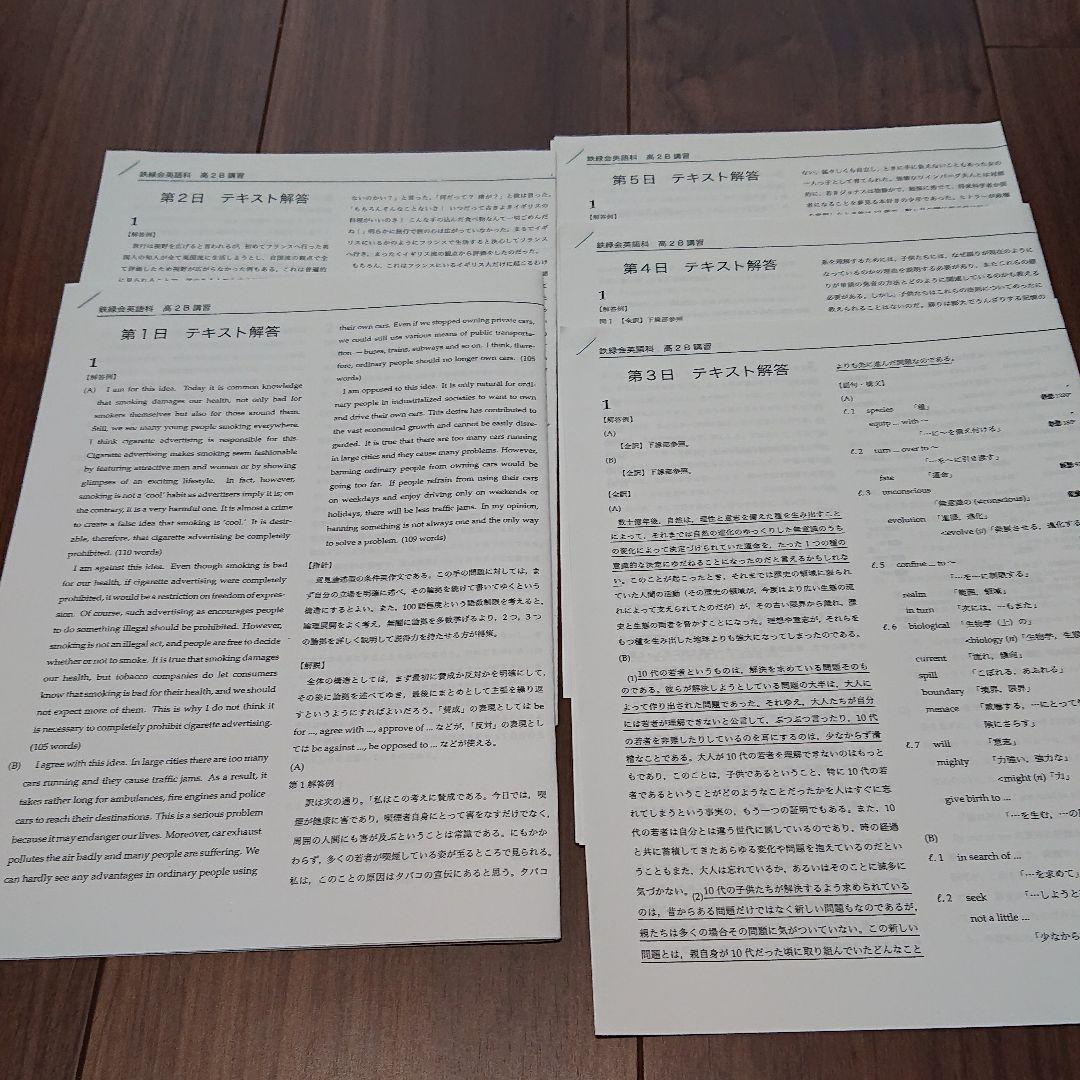 鉄緑会英語科 高2B講習
第2日 テキスト解答
1
【解答例】
旅行は視野を広げると言われるが，初めてフランスへ行った英
国人の知人が全て英国流に生活しようとし，自国流の観点で全
て評価したため視野が広がらなかった例もある。これは普遍的
ないのかい？」と言った。「何だって？ 糟が？」と彼は言った。
鉄緑会英語科 高2B講習
第1日 テキスト解答
1
【解答例】
(A) I am for this idea. Today it is common knowledge
that smoking damages our health, not only bad for
smokers themselves but also for those around them.
Still, we see many young people smoking everywhere.
I think cigarette advertising is responsible for this.
Cigarette advertising makes smoking seem fashionable
by featuring attractive men and women or by showing
glimpses of an exciting lifestyle. In fact, however,
smoking is not a ‘cool’ habit as advertisers imply it is; on
the contrary, it is a very harmful one. It is almost a crime
to create a false idea that smoking is ‘cool.’ It is desir-
able, therefore, that cigarette advertising be completely
prohibited. (110 words)
I am against this idea. Even though smoking is bad
for our health, if cigarette advertising were completely
prohibited, it would be a restriction on freedom of expres-
sion. Of course, such advertising as encourages people
to do something illegal should be prohibited. However,
smoking is not an illegal act, and people are free to decide
whether or not to smoke. It is true that smoking damages
our health, but tobacco companies do let consumers
know that smoking is bad for their health, and we should
not expect more of them. This is why I do not think it
is necessary to completely prohibit cigarette advertising.
(105 words)
(B) I agree with this idea. In large cities there are too many
cars running and they cause traffic jams. As a result, it
takes rather long for ambulances, fire engines and police
cars to reach their destinations. This is a serious problem
because it may endanger our lives. Moreover, car exhaust
pollutes the air badly and many people are suffering. We
can hardly see any advantages in ordinary people using
their own cars. Even if we stopped owning private cars,
we could still use various means of public transporta-
tion — buses, trains, subways and so on. I think, there-
fore, ordinary people should no longer own cars. (105
words)
I am opposed to this idea. It is only natural for ordi-
nary people in industrialized societies to want to own
and drive their own cars. This desire has contributed to
the vast economical growth and cannot be easily disre-
garded. It is true that there are too many cars running
in large cities and they cause many problems. However,
banning ordinary people from owning cars would be
going too far. If people refrain from using their cars
on weekdays and enjoy driving only on weekends or
holidays, there will be less traffic jams. In my opinion,
banning something is not always one and the only way
to solve a problem. (109 words)
【指針】
意見論述型の条件英作文である。この手の問題に対しては，ま
ず自分の立場を明確に述べ，その論拠を続けて書いてゆくという
構造にするとよい。また，100語程度という語数制限を考えると，
論理展開をよく考え，無闇に論拠を多数挙げるより，2つ，3つ
の論拠を詳しく説明して説得力を持たせる方が得策。
【解説】
全体の構造としては，まず最初に賛成か反対かを明確にして，
その後に論拠を述べてゆき，最後にまとめとして主張を繰り返
すというようにすればよいだろう。「賛成」の表現としては be
for ..., agree with ..., approve of ... などが，「反対」の表現とし
ては be against ..., be opposed to ... などが使える。
(A)
第1解答例
訳は次の通り。「私はこの考えに賛成である。今日では，喫
煙が健康に害であり，喫煙者自身にとって害をなすだけでなく，
周囲の人間にも害が及ぶということは常識である。にもかか
わらず，多くの若者が喫煙している姿が至るところで見られる。
私は，このことの原因はタバコの宣伝にあると思う。タバコ
鉄緑会英語科 高2B講習
第5日 テキスト解答
1
【解答例】
鉄緑会英語科 高2B講習
第4日 テキスト解答
1
【解答例】
問1 【全訳】下線部参照
鉄緑会英語科 高2B講習
第3日 テキスト解答
1
【解答例】
(A)
【全訳】下線部参照。
(B)
【全訳】下線部参照。
【全訳】
(A)
数十億年後，自然は，理性と意志を備えた種を生み出すこと
によって，それまでは自然の進化のゆっくりした無意識のうち
の変化によって決定づけられていた運命を，たった1つの種の
意識的な決定にゆだねることになったのだと言えるかもしれな
い。このことが起こったとき，それまでは歴史の領域に限られ
ていた人間の活動（その歴史の領域が，今度はより広い生態の流
れによって支えられてたのだが）が，その古い限界から離れ，歴
史と生態の両者を脅かすことになった。理想や意志が，それらを
もつ種を生み出した地球よりも強大になってしまったのである。
(B)
(1)10代の若者というものは，解決を求めている問題そのも
のである。彼らが解決しようとしている問題の大半は，大人に
よって作り出された問題であった。それゆえ，大人たちが自分
には若者が理解できないと公言して，ぶつぶつ言ったり，10代
の若者を非難したりしているのを耳にするのは，少なからず滑
稽なことである。大人が10代の若者を理解できないのはもっと
もであり，このことは，子供であるということ，特に10代の若
者であるということがどのようなことだったかを人はすぐに忘
れてしまうという事実の，もう一つの証明でもある。また，10
代の若者は自分とは違う世代に属しているのであり，時の経過
と共に蓄積してきたあらゆる変化や問題を抱えているのだとい
うこともまた，大人は忘れているか，あるいはそのことに滅多に
気づかない。(2)10代の子供たちが解決するよう求められている
のは，昔からある問題だけではなく新しい問題もなのであるが，
親たちは多くの場合その問題に気がついていない。この新しい
問題とは，親自身が10代だった頃に取り組んでいたどんなこと
よりも先に進んだ問題なのである。
【語句・構文】
(A)
ℓ.1 species 「種」
equip ... with ~
「…に～を備え付ける」
ℓ.2 turn ... over to ~
「…を～に引き渡す」
fate 「運命」
ℓ.3 unconscious
「無意識の (⇔conscious)」
evolution 「進展，進化」
<evolve (v)「発展させる，進化する
ℓ.5 confine ... to ~
「…を～に制限する」
realm 「範囲，領域」
in turn 「次には，～もまた」
ℓ.6 biological 「生物学（上）の」
<biology (n)「生物学，生態
current 「流れ，傾向」
spill 「こぼれる，あふれる」
boundary 「境界，限界」
menace 「威嚇する，…にとって
険にさらす」
ℓ.7 will 「意志」
mighty 「力強い，強力な」
<might (n)「力」
give birth to ...
「…を生む，…の
(B)
ℓ.1 in search of ...
「…を求めて」
ℓ.2 seek 「…しようと
not a little ...
「少なから